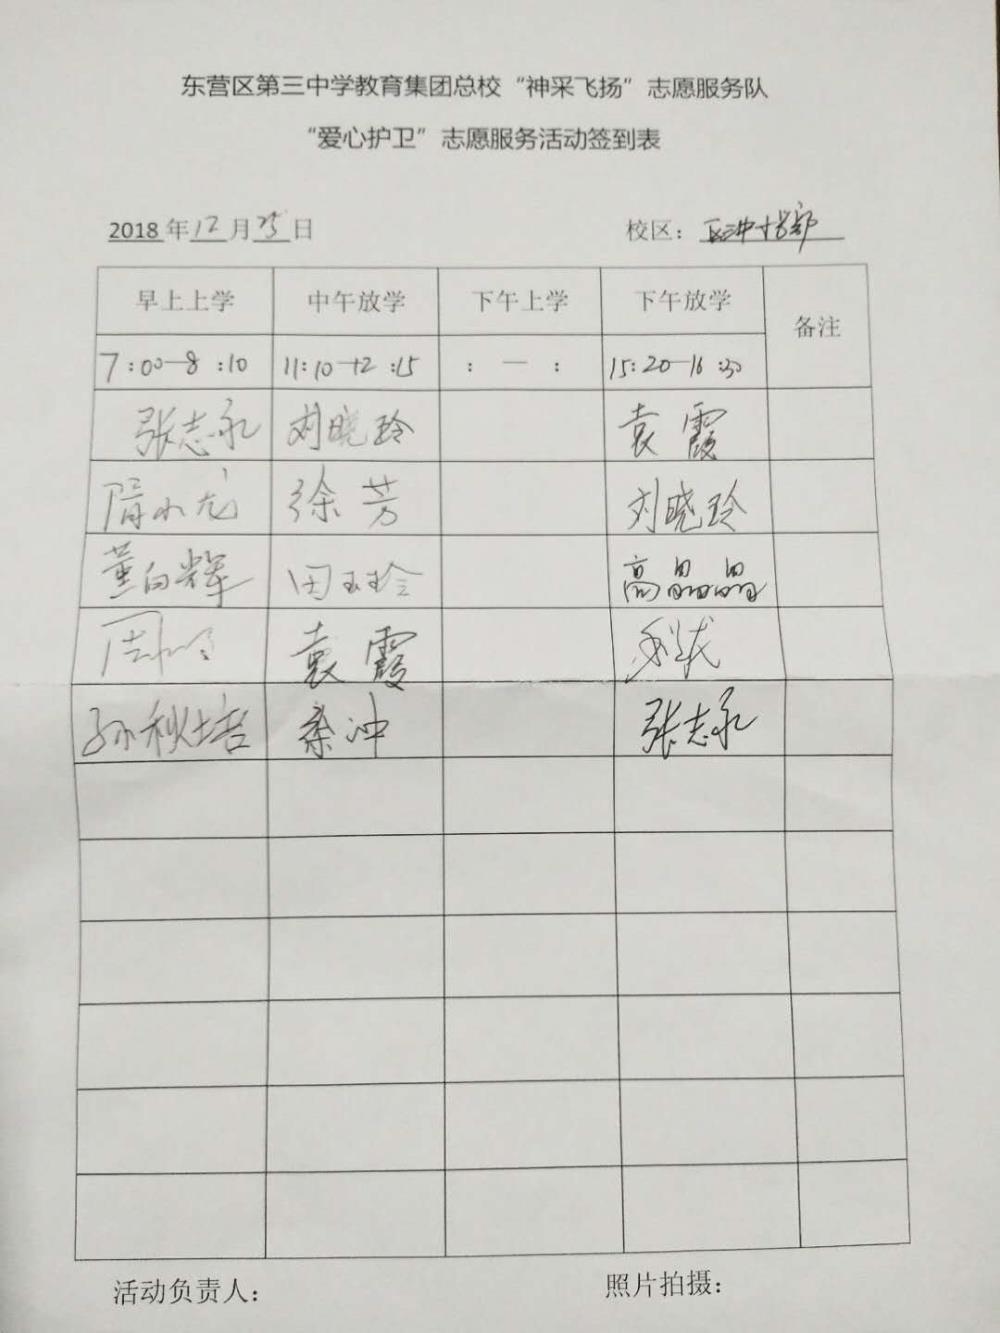 东营区第三中学教育集团总校“神采飞扬”志愿服务队
“爱心护卫”志愿服务活动签到表
2018年12月25日 校区：
早上上学 中午放学 下午上学 下午放学 备注
7:00—8:10 11:10—12:15 : — : 15:20—16:30
张志永 刘晓玲 袁霞
隋小龙 徐芳 刘晓玲
董向辉 田玉玲 高晶晶
周 袁霞
孙秋培 秦冲 张志永
活动负责人： 照片拍摄：